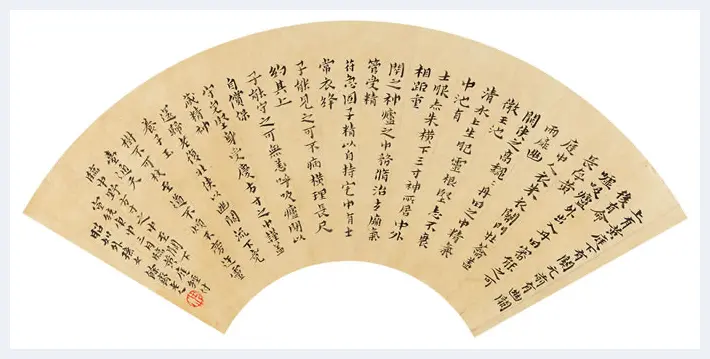 上有黄庭下有關元前有幽闕
後有命
嘘吸廬外出入丹田審能行之可
長存黄
庭中人衣朱衣關門壯籥盖
兩扉
幽闕俠之高巍巍丹田之中精氣
微玉池
清水上生肥靈根堅志不衰
中池有
士服赤朱横下三寸神所居中外
相距重
閉之神廬之中務脩治玄膺氣
管受精
符急固子精以自持宅中有士
常衣絳
子能見之可不病横理長尺
約其上
子能守之可無恙呼吸廬間以
自償保
守完堅身受慶方寸之中謹盖
藏精神
還歸老復壯俠以幽闕流下竟
養子玉
樹不可杖至道不煩不旁迕靈
臺通天
臨中野方寸之中至關下